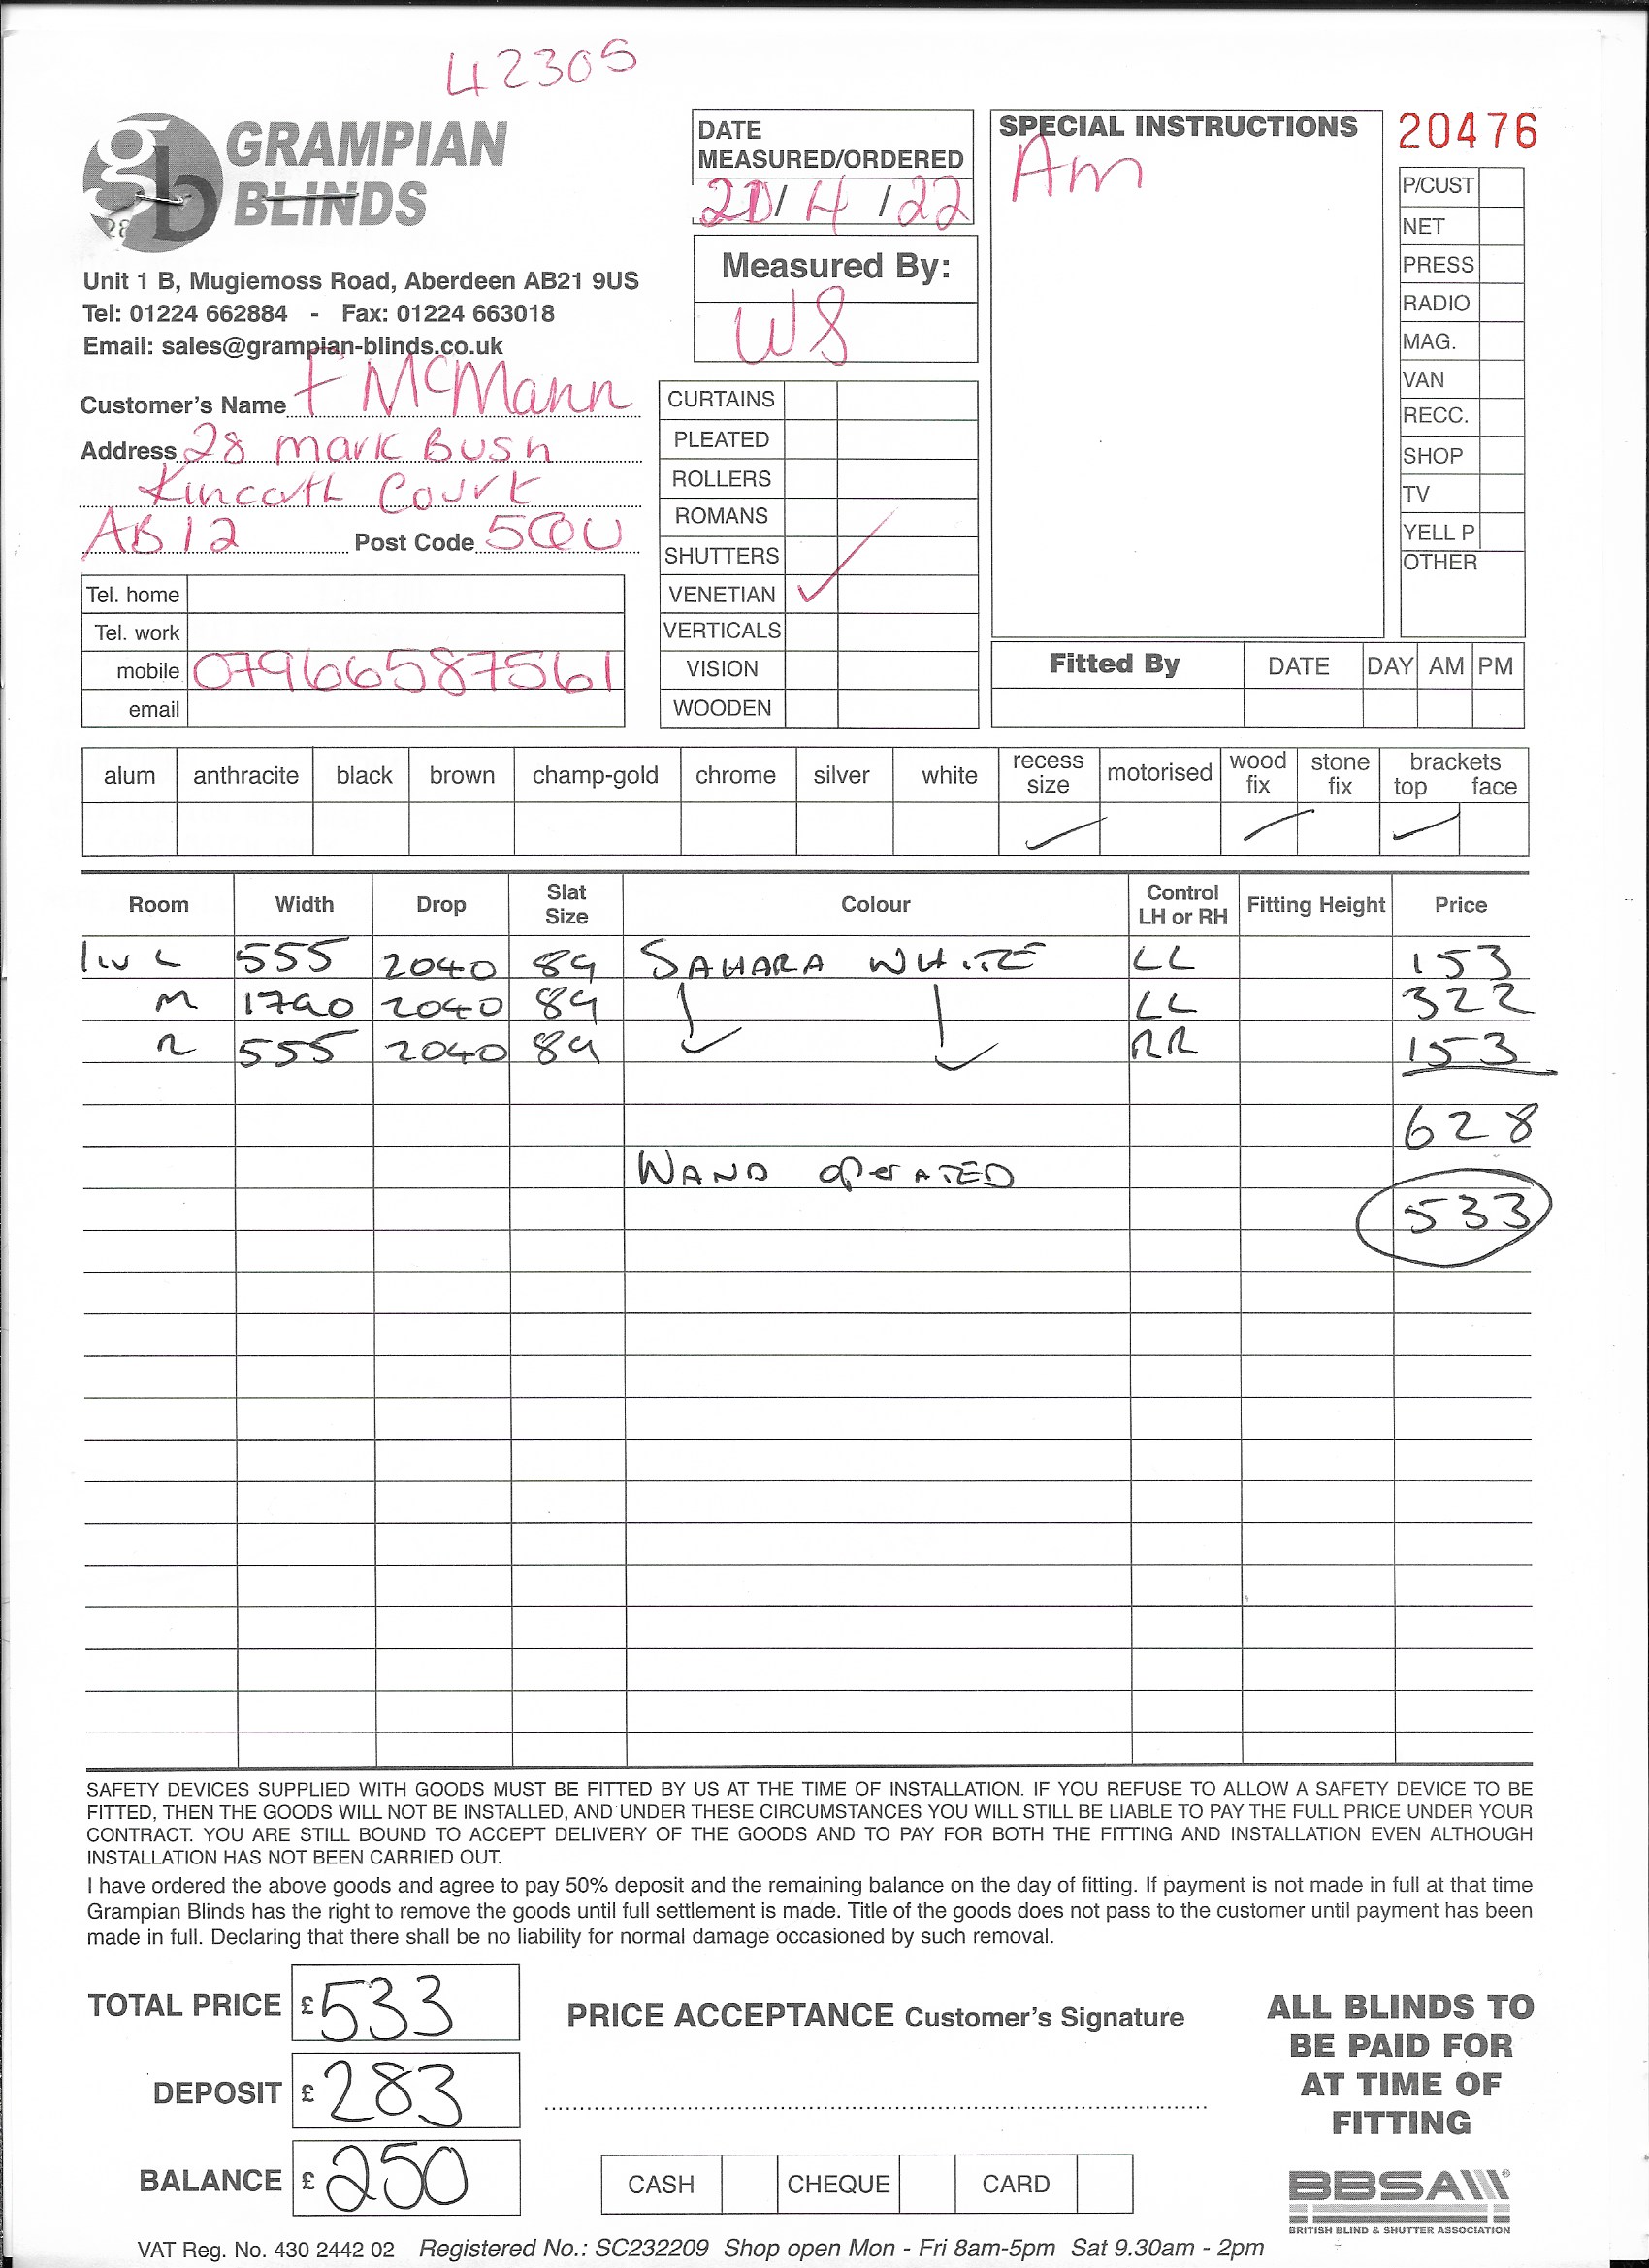 42305
GRAMPIAN
BLINDS
Unit 1 B, Mugiemoss Road, Aberdeen AB21 9US
Tel: 01224 662884 - Fax: 01224 663018
Email: sales@grampian-blinds.co.uk
Customer's Name F McMann
Address 28 Mark Bush
Kincath Court
AB12 Post Code 5QU
Tel. home
Tel. work
mobile 07966587561
email
DATE
MEASURED/ORDERED
20/4/22
Measured By:
WS
CURTAINS
PLEATED
ROLLERS
ROMANS
SHUTTERS
VENETIAN ✓
VERTICALS
VISION
WOODEN
SPECIAL INSTRUCTIONS
Am
20476
P/CUST
NET
PRESS
RADIO
MAG.
VAN
RECC.
SHOP
TV
YELL P
OTHER
Fitted By DATE DAY AM PM
alum anthracite black brown champ-gold chrome silver white recess size motorised wood fix stone fix brackets top face
Room Width Drop Slat Size Colour Control LH or RH Fitting Height Price
Liv L 555 2040 89 SAHARA WHITE LL 153
M 1790 2040 89 LL 322
R 555 2040 89 RR 153
628
WAND OPERATED
533
SAFETY DEVICES SUPPLIED WITH GOODS MUST BE FITTED BY US AT THE TIME OF INSTALLATION. IF YOU REFUSE TO ALLOW A SAFETY DEVICE TO BE
FITTED, THEN THE GOODS WILL NOT BE INSTALLED, AND UNDER THESE CIRCUMSTANCES YOU WILL STILL BE LIABLE TO PAY THE FULL PRICE UNDER YOUR
CONTRACT. YOU ARE STILL BOUND TO ACCEPT DELIVERY OF THE GOODS AND TO PAY FOR BOTH THE FITTING AND INSTALLATION EVEN ALTHOUGH
INSTALLATION HAS NOT BEEN CARRIED OUT.
I have ordered the above goods and agree to pay 50% deposit and the remaining balance on the day of fitting. If payment is not made in full at that time
Grampian Blinds has the right to remove the goods until full settlement is made. Title of the goods does not pass to the customer until payment has been
made in full. Declaring that there shall be no liability for normal damage occasioned by such removal.
TOTAL PRICE £533
DEPOSIT £283
BALANCE £250
PRICE ACCEPTANCE Customer's Signature
CASH CHEQUE CARD
ALL BLINDS TO
BE PAID FOR
AT TIME OF
FITTING
BBSA
BRITISH BLIND & SHUTTER ASSOCIATION
VAT Reg. No. 430 2442 02 Registered No.: SC232209 Shop open Mon - Fri 8am-5pm Sat 9.30am - 2pm